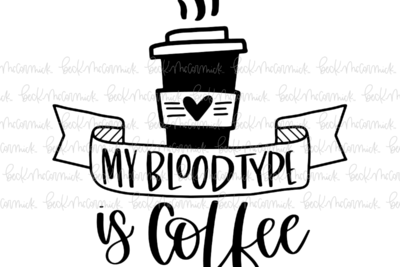 MY BLOOD TYPE
is Coffee